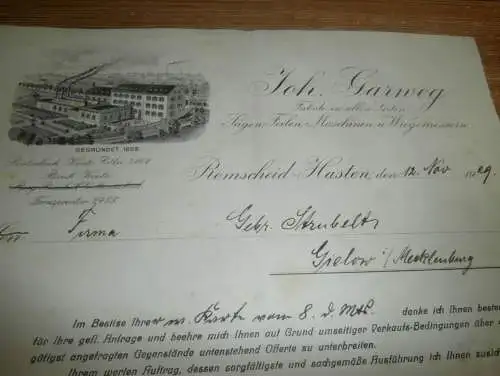 Joh. Garweg
Fabrik in allen Sorten
Sägen, Feilen, Maschinen u. Wiegemessern
GEGRÜNDET 1868
Remscheid-Hasten, den 12. Nov. 1929.
Fernsprecher
An Firma
Gebr. Strubelt
Gielow i/Mecklenburg
Im Besitze Ihrer w. Karte vom 8. d. Mts. danke ich Ihnen bestens
für Ihre gefl. Anfrage und beehre mich Ihnen auf Grund umseitiger Verkaufs-Bedingungen über
gütigst angefragten Gegenstände untenstehend Offerte zu unterbreiten.
Ihrem werten Auftrag, dessen sorgfältigste und sachgemäße Ausführung ich Ihnen